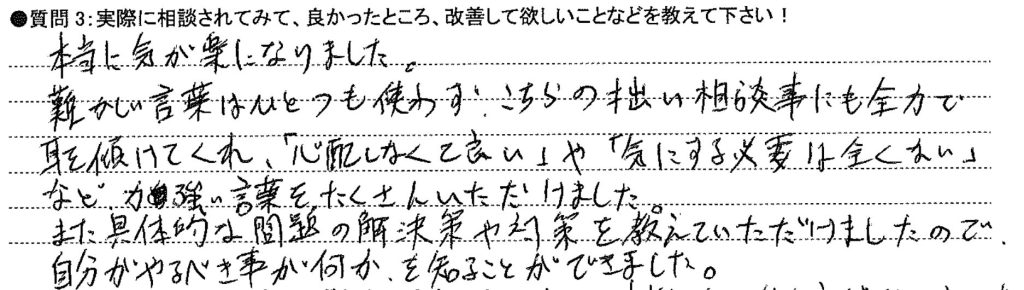 ●質問3:実際に相談されてみて、良かったところ、改善して欲しいことなどを教えて下さい!
本当に気が楽になりました。
難かしい言葉はひとつも使わず、こちらの拙い相談事にも全力で
耳を傾けてくれ、「心配しなくて良い」や「気にする必要は全くない」
など、力強い言葉をたくさんいただけました。
また具体的な問題の解決策や対策を教えていただけましたので、
自分がやるべき事が何か、を知ることができました。